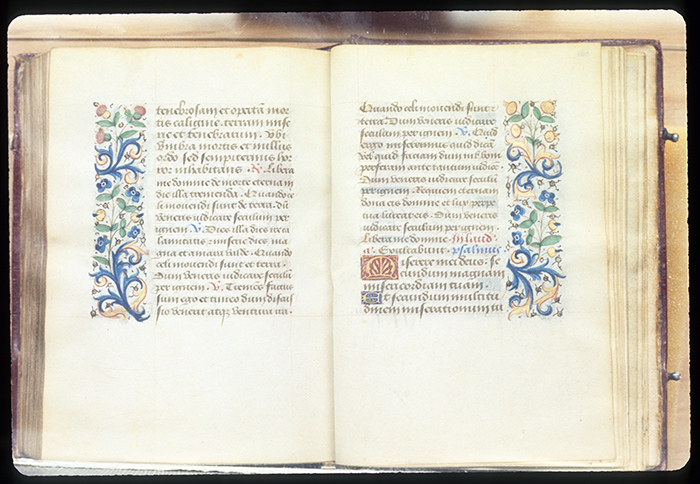 tenebrosam et opertã mor
tis caligine. terram mise
rie et tenebrarum. Vbi
vmbra mortis et nullus
ordo sed sempiternus hor
ror inhabitans. R. Libera
me domine de morte eternam
die illa tremenda. Quando ce
li mouendi sunt de terra. dũ
veneris iudicare seculum per
ignem. V. Dies illa dies ire
lamitatis 7 miserie dies ma
gna et amara valde. Quando
celi mouendi sunt et terra.
Dum veneris iudicare seculũ
per ignem. V. Tremẽs factus
sum ego et timeo dum discus
sio venerit atqȝ ventura ira.
Quando celi mouendi sunt 7
terra. Dum veneris iudicare
seculum per ignem. V. Quid
ergo miserrimus quid dicã
vel quid faciam dum nil boni
perferam ante tantum iudicẽ.
Dum veneris iudicare seculũ
per ignem. Requiem eternam
dona eis domine et lux perpe
tua luceat eis. Dum veneris
iudicare seculum per ignem.
Libera me domine. In laud.
a. Exultabunt. psalmus
Miserere mei deus. se
cundum magnam
misericordiam tuam.
Et secundum multitu
dinem miserationum tua